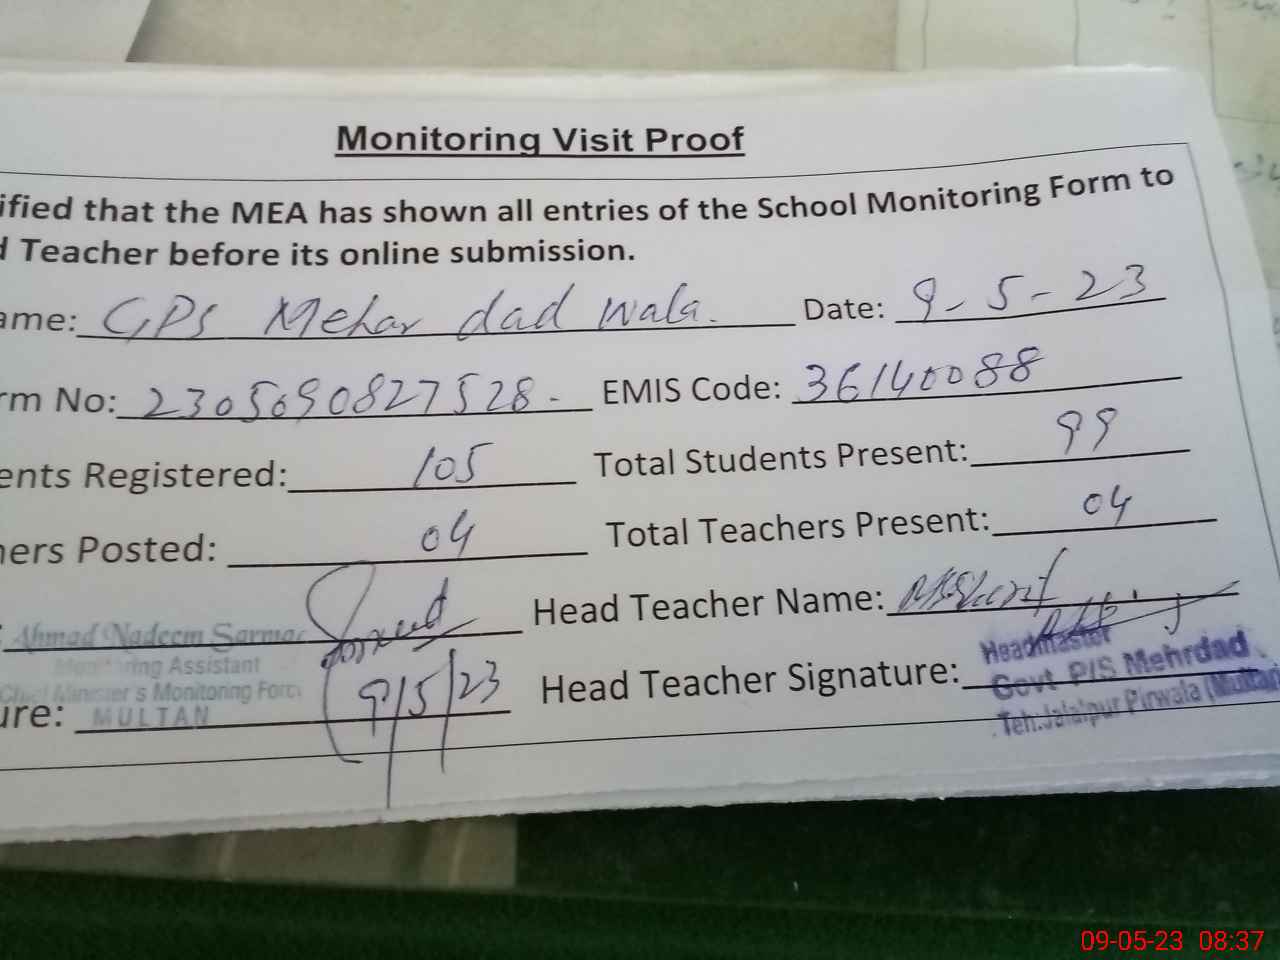 Monitoring Visit Proof
ified that the MEA has shown all entries of the School Monitoring Form to
d Teacher before its online submission.
ame: GPS Mehar dad wala. Date: 9-5-23
rm No: 2305090827528- EMIS Code: 36140088
ents Registered: 105 Total Students Present: 99
hers Posted: 04 Total Teachers Present: 04
: Ahmad Nadeem Sarmad Head Teacher Name:
Monitoring Assistant
Chief Minister's Monitoring Force
MULTAN
ure: 9/5/23 Head Teacher Signature:
Headmaster
Govt P/S Mehrdad
Teh.Jalalpur Pirwala (Multan
09-05-23 08:37